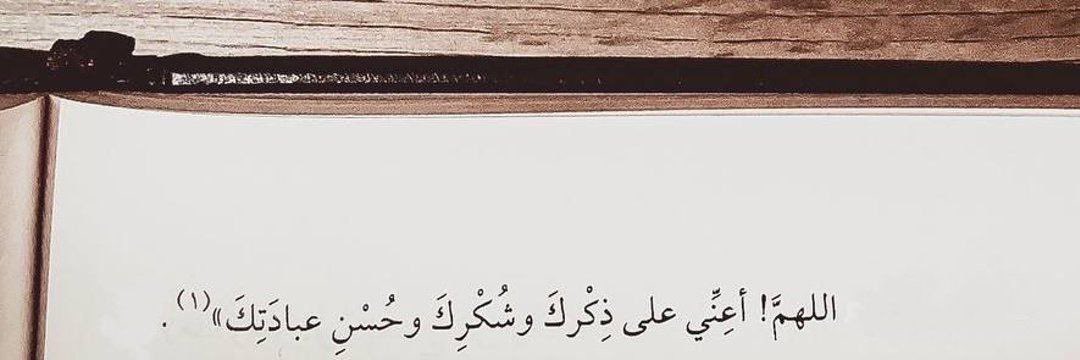 اللهمَّ! أعِنِّي على ذِكْركَ وشُكْرِكَ وحُسْنِ عبادَتِكَ»(١).